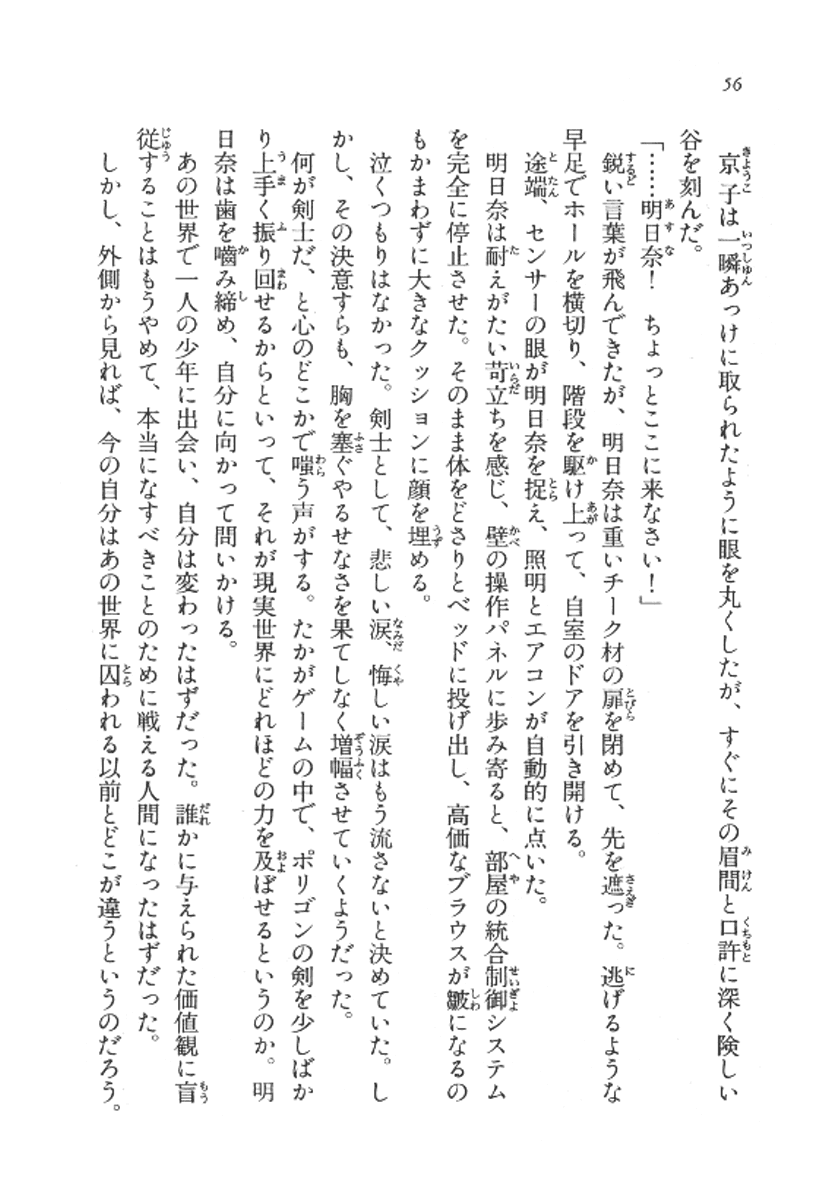 56
京子は一瞬あっけに取られたように眼を丸くしたが、すぐにその眉間と口許に深く険しい
谷を刻んだ。
「……明日奈！　ちょっとここに来なさい！」
鋭い言葉が飛んできたが、明日奈は重いチーク材の扉を閉めて、先を遮った。逃げるような
早足でホールを横切り、階段を駆け上って、自室のドアを引き開ける。
途端、センサーの眼が明日奈を捉え、照明とエアコンが自動的に点いた。
明日奈は耐えがたい苛立ちを感じ、壁の操作パネルに歩み寄ると、部屋の統合制御システム
を完全に停止させた。そのまま体をどさりとベッドに投げ出し、高価なブラウスが皺になるの
もかまわずに大きなクッションに顔を埋める。
泣くつもりはなかった。剣士として、悲しい涙、悔しい涙はもう流さないと決めていた。し
かし、その決意すらも、胸を塞ぐやるせなさを果てしなく増幅させていくようだった。
何が剣士だ、と心のどこかで嗤う声がする。たかがゲームの中で、ポリゴンの剣を少しばか
り上手く振り回せるからといって、それが現実世界にどれほどの力を及ぼせるというのか。明
日奈は歯を嚙み締め、自分に向かって問いかける。
あの世界で一人の少年に出会い、自分は変わったはずだった。誰かに与えられた価値観に盲
従することはもうやめて、本当になすべきことのために戦える人間になったはずだった。
しかし、外側から見れば、今の自分はあの世界に囚われる以前とどこが違うというのだろう。